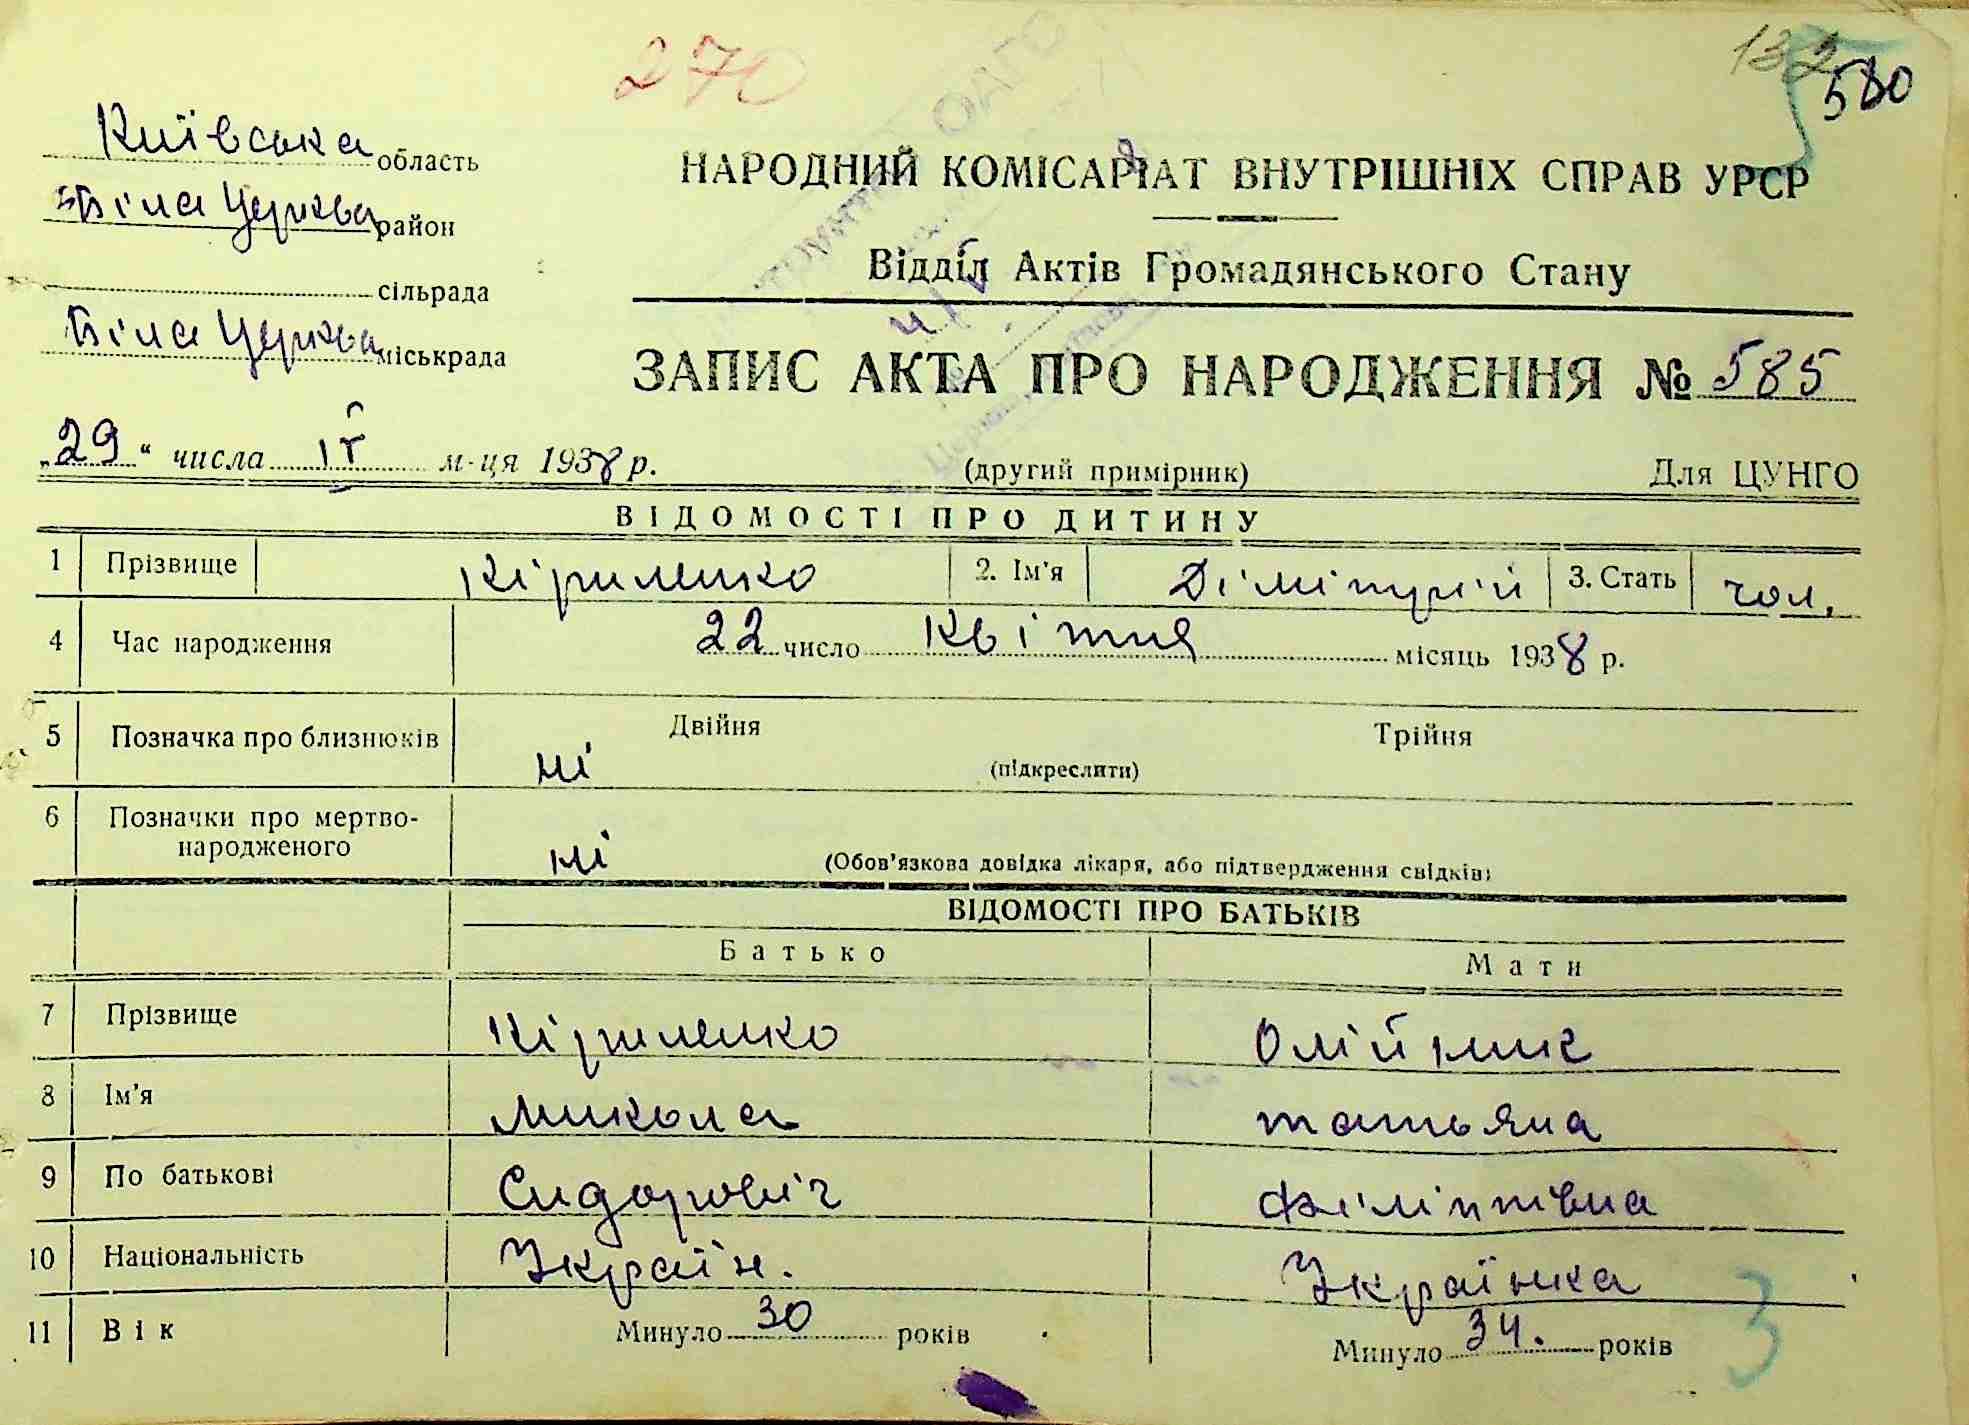 270
132
580
Київська область
Біла Церква район
сільрада
Біла Церква міськрада
НАРОДНИЙ КОМІСАРІАТ ВНУТРІШНІХ СПРАВ УРСР
Відділ Актів Громадянського Стану
ЗАПИС АКТА ПРО НАРОДЖЕННЯ № 585
„29“ числа IV м-ця 1938 р. (другий примірник) Для ЦУНГО
ВІДОМОСТІ ПРО ДИТИНУ
1 Прізвище Кіриленко 2. Ім'я Дімітрій 3. Стать чол.
4 Час народження 22 число Квітня місяць 1938 р.
5 Позначка про близнюків ні Двійня Трійня
(підкреслити)
6 Позначки про мертво-
народженого ні (Обов'язкова довідка лікаря, або підтвердження свідків)
ВІДОМОСТІ ПРО БАТЬКІВ
Батько Мати
7 Прізвище Кіриленко Олійник
8 Ім'я Микола татьяна
9 По батькові Сидорович Філіппівна
10 Національність Україн. Українка
11 Вік Минуло 30 років Минуло 34. років
3